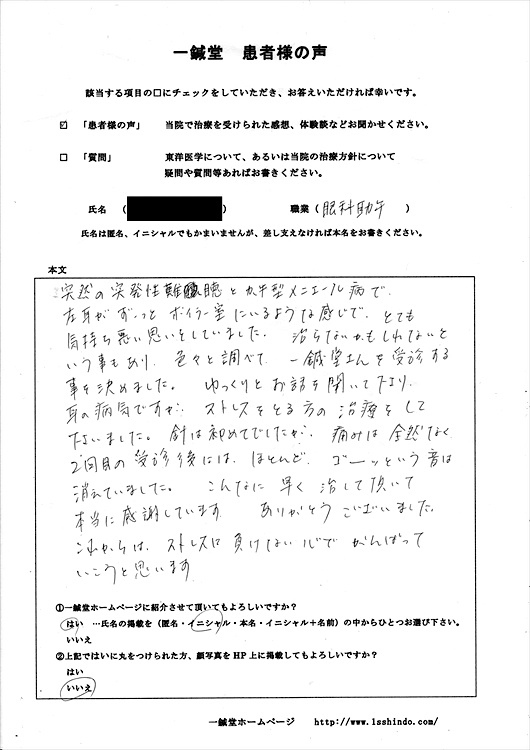 一鍼堂 患者様の声
該当する項目の□にチェックをしていただき、お答えいただければ幸いです。
☑ 「患者様の声」 当院で治療を受けられた感想、体験談などお聞かせください。
□ 「質問」 東洋医学について、あるいは当院の治療方針について
疑問や質問等あればお書きください。
氏名 ( ) 職業 ( 眼科助手 )
氏名は匿名、イニシャルでもかまいませんが、差し支えなければ本名をお書きください。
本文
突然の突発性難聴と蝸牛型メニエール病で
左耳がずーっとボイラー室にいるような感じで、とても
気持ち悪い思いをしていました。 治らないかもしれないと
いう事もあり、色々と調べて、一鍼堂さんを受診する
事を決めました。 ゆっくりとお話を聞いて下さり、
耳の病気ですが、ストレスをとる方の治療をして
下さいました。針は初めてでしたが、痛みは全然なく
2回目の受診後には、ほとんど、ゴーッという音は
消えていました。 こんなに早く治して頂いて
本当に感謝しています ありがとうございました。
これからは、ストレスに負けない心でがんばって
いこうと思います
①一鍼堂ホームページに紹介させて頂いてもよろしいですか？
はい …氏名の掲載を（匿名・イニシャル・本名・イニシャル＋名前）の中からひとつお選び下さい。
いいえ
②上記ではいに丸をつけられた方、顔写真をHP上に掲載してもよろしいですか？
はい
いいえ
一鍼堂ホームページ http://www.1sshindo.com/